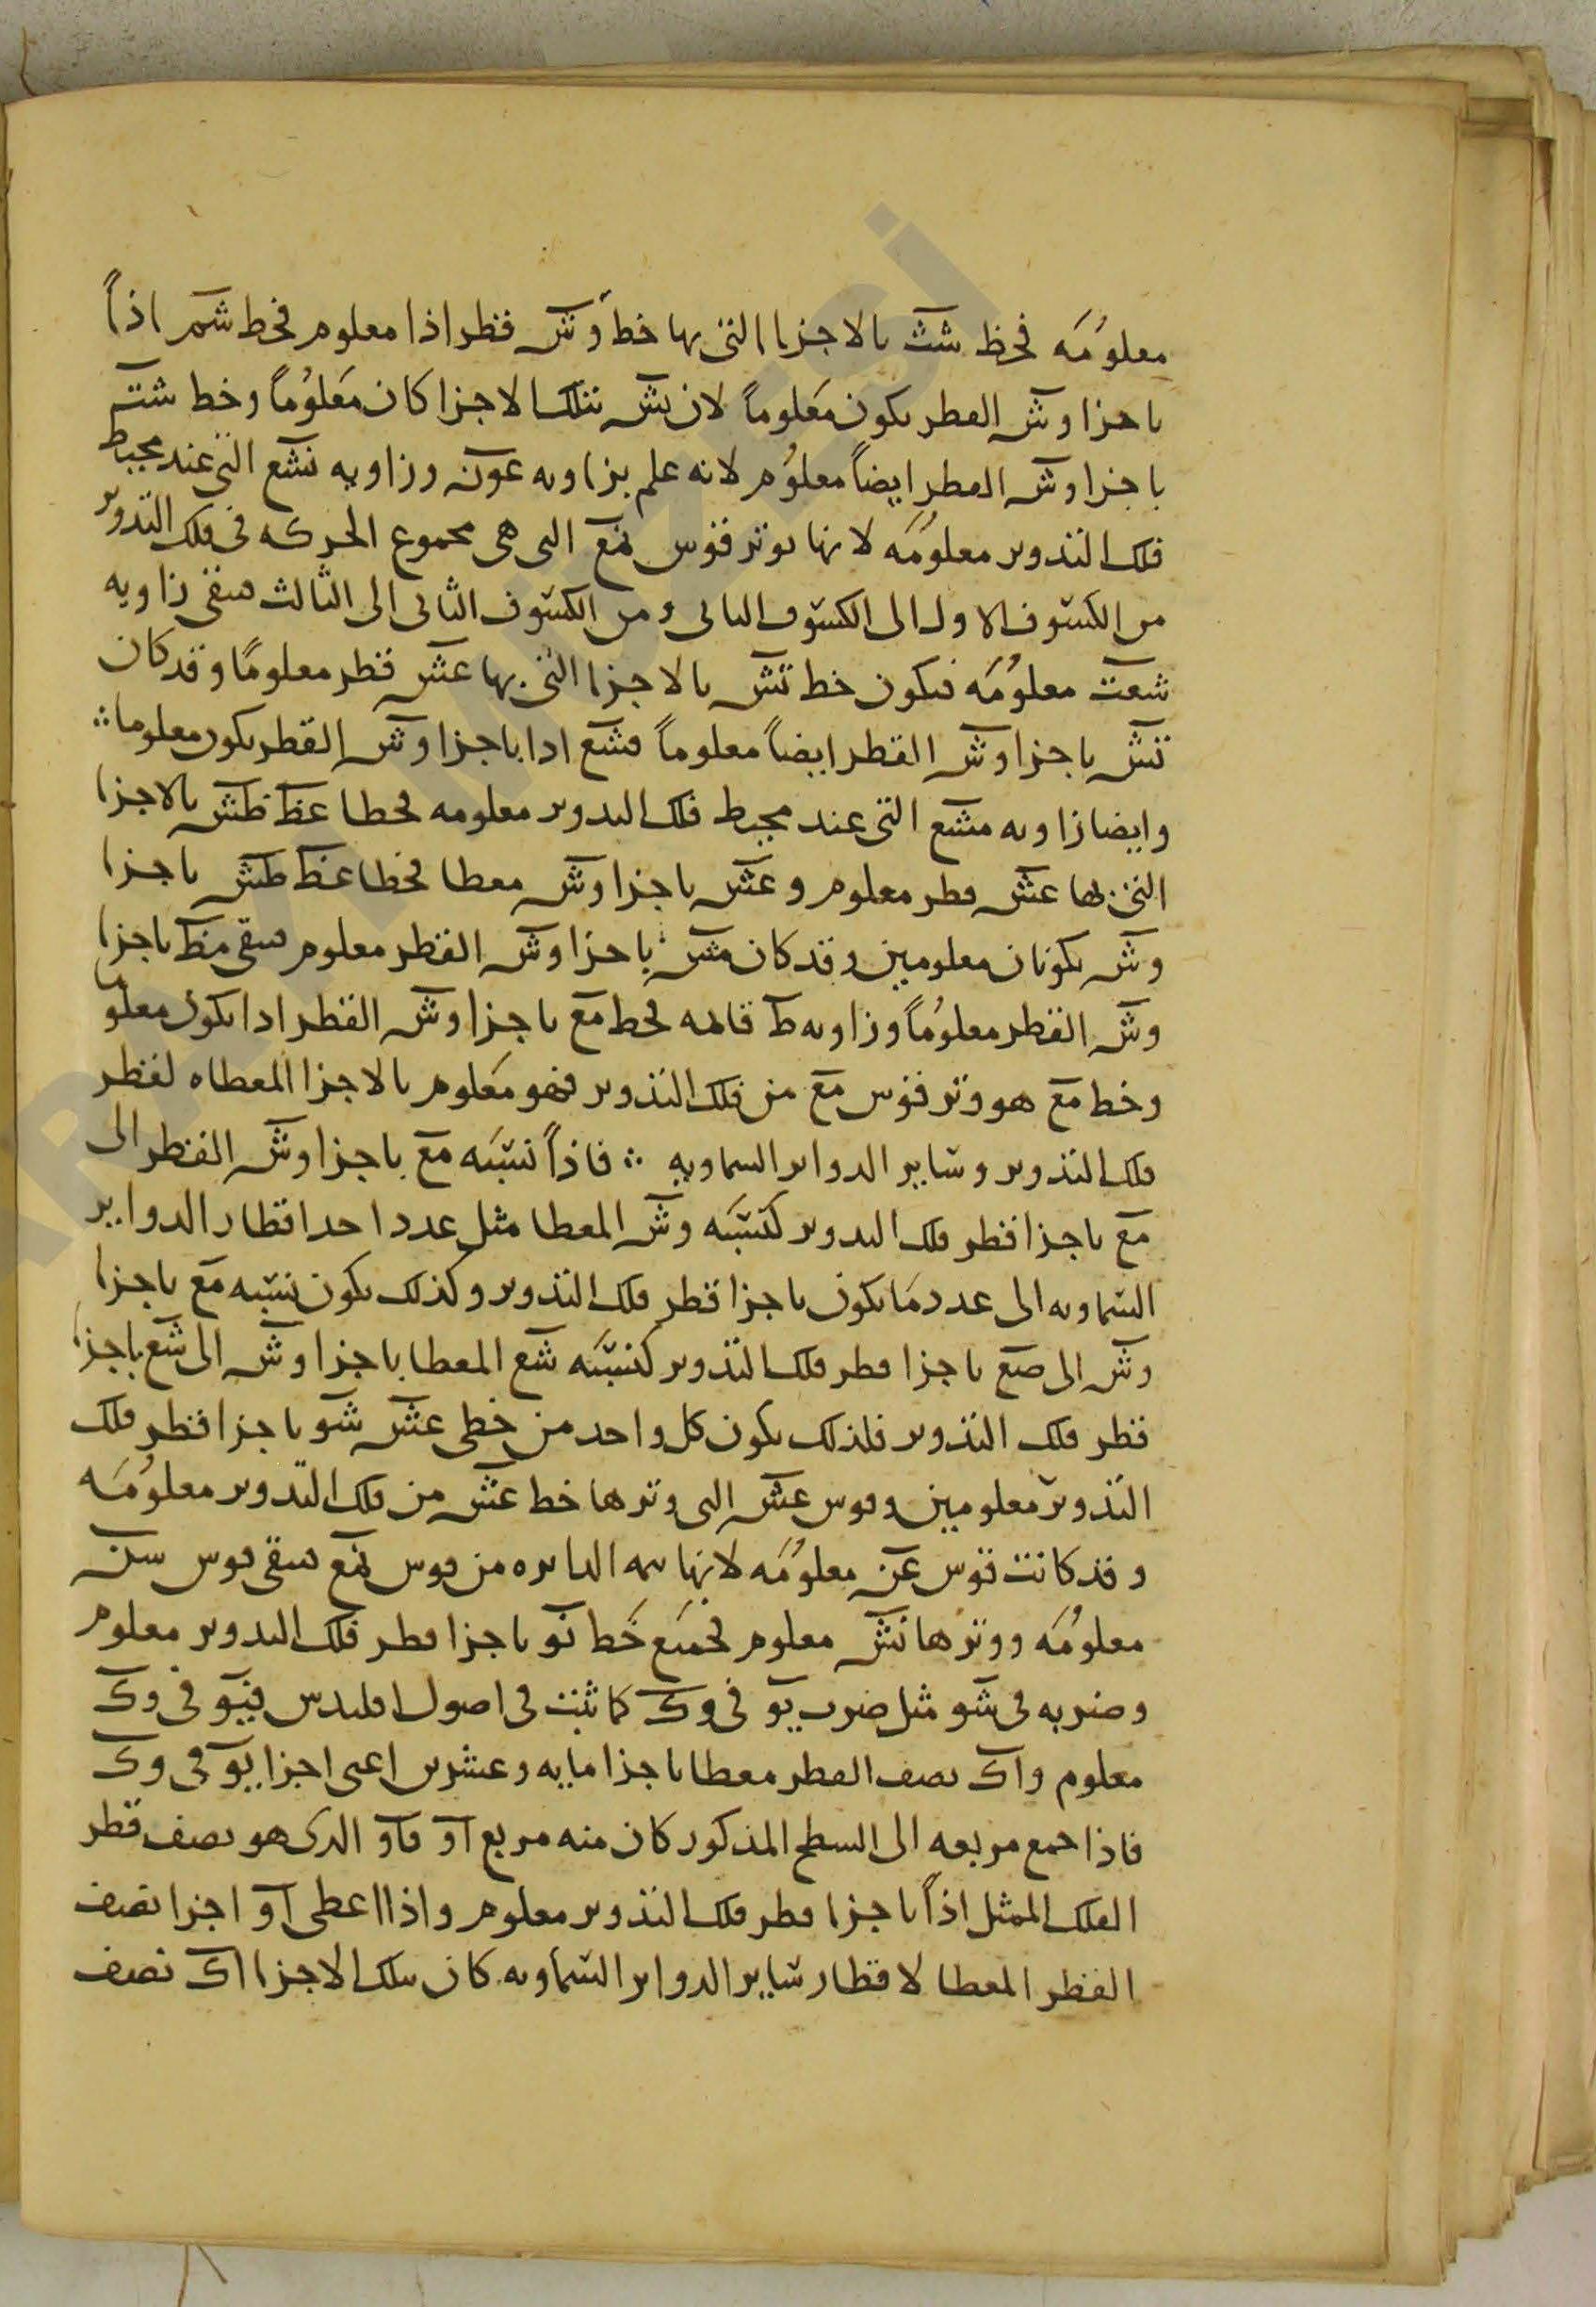 معلومه فخط شث بالاجزا التى بها خط وش قطر اذا معلوم فخط شم اذاً
باجزا وش القطر يكون معلوماً لان يش بتلك الاجزا كان معلوماً وخط شت
باجزا وش القطر ايضاً معلوم لانه علم بزاويه عون وزاويه نشع التى عند محيط
فلك التدوير معلومه لانها توتر قوس نمع التى هى مجموع الحركه فى فلك التدوير
من الكسوف الاول الى الكسوف الثانى ومن الكسوف الثانى الى الثالث فتبقى زاويه
شعت معلومه فيكون خط تش بالاجزا التى بها عش قطر معلومًا وقد كان
تش باجزا وش القطر ايضاً معلوماً فشع اذا باجزا وش القطر يكون معلوما
وايضا زاويه مشع التى عند محيط فلك التدوير معلومه فخطا عظ ظش بالاجزا
التى بها عش قطر معلوم وعش باجزا وش معطا فخطا عظ ظش باجزا
وش يكونان معلومين وقد كان مش باجزا وش القطر معلوم فتبقى مظ باجزا
وش القطر معلومًا وزاويه ظ قائمه فخط مع باجزا وش القطر اذا يكون معلوما
وخط مع هو وتر قوس مع من فلك التدوير فهو معلوم بالاجزا المعطاه لقطر
فلك التدوير وساير الدواير السماويه فاذاً نسبه مع باجزا وش القطر الى
مع باجزا قطر فلك التدوير كنسبه وش المعطا مثل عدد احد اقطار الدواير
السماويه الى عدد ما يكون باجزا قطر فلك التدوير وكذلك يكون نسبه مع باجزا
وش الى مع باجزا قطر فلك التدوير كنسبه شع المعطا باجزا وش الى شع باجزا
قطر فلك التدوير فلذلك يكون كل واحد من خطى عش شو باجزا قطر فلك
التدوير معلومين وقوس عش التى وترها خط عش من فلك التدوير معلومه
وقد كانت قوس عن معلومه لانها تتمه الدايره من قوس نمع فتبقى قوس سن
معلومه ووترها نش معلوم فجميع خط نو باجزا قطر فلك التدوير معلوم
وضربه فى شو مثل ضرب يو فى وك كما ثبت فى اصول اقليدس فيو فى وك
معلوم واك نصف القطر معطا باجزا مايه وعشرين اعنى اجزا يو فى وك
فاذا جمع مربعه الى السطح المذكور كان منه مربع او فاو الذى هو نصف قطر
الفلك الممثل اذاً باجزا قطر فلك التدوير معلوم واذا اعطى او اجزا نصف
القطر المعطا لاقطار ساير الدواير السماويه كان بتلك الاجزا اك نصف